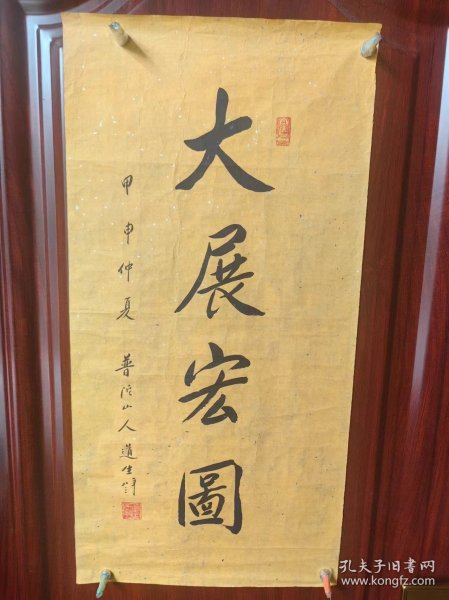 大展宏圖
甲申仲夏 普陀山人道生
孔夫子旧书网
www.kongfz.com